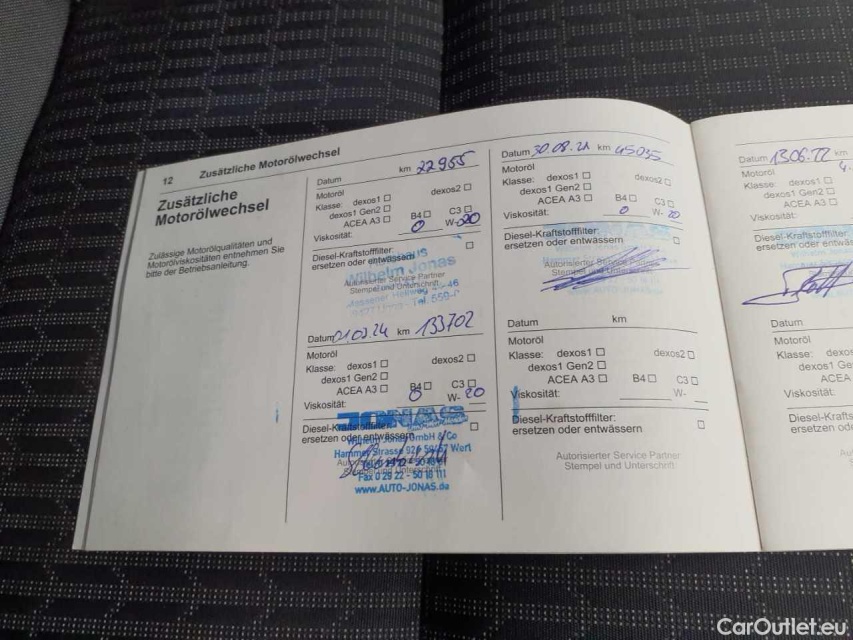 12 Zusätzliche Motorölwechsel
Zusätzliche
Motorölwechsel
Zulässige Motorölqualitäten und
Motorölviskositäten entnehmen Sie
bitte der Betriebsanleitung.
Datum km 22955
Motoröl
Klasse: dexos1 dexos2
dexos1 Gen2
ACEA A3 B4 C3
Viskosität: 0 W- 20
Diesel-Kraftstofffilter:
ersetzen oder entwässern
Wilhelm Jonas
Autorisierter Service Partner
Stempel und Unterschrift
Datum km 133702
Motoröl
Klasse: dexos1 dexos2
dexos1 Gen2
ACEA A3 B4 C3
Viskosität: 0 W- 20
JONAS
Diesel-Kraftstofffilter:
ersetzen oder entwässern
Wilhelm Jonas GmbH & Co
Hammer Strasse Werl
Fax 0 29 22 - 50 18 111
www.AUTO-JONAS.de
Datum 30.08.21 km 45035
Motoröl
Klasse: dexos1 dexos2
dexos1 Gen2
ACEA A3 B4 C3
Viskosität: 0 W- 20
Diesel-Kraftstofffilter:
ersetzen oder entwässern
Autorisierter Service
Stempel und Unterschrift
Datum km
Motoröl
Klasse: dexos1 dexos2
dexos1 Gen2
ACEA A3 B4 C3
Viskosität: W-
Diesel-Kraftstofffilter:
ersetzen oder entwässern
Autorisierter Service Partner
Stempel und Unterschrift
Datum 13.06.22 km
Motoröl
Klasse: dexos1
dexos1 Gen2
ACEA A3
Viskosität:
Diesel-Kraftstofffilter:
ersetzen oder entwäs
Datum
Motoröl
Klasse: dexos
dexos1 Ge
ACEA
Viskosität:
Diesel-Krafts
ersetzen ode
CarOutlet.eu